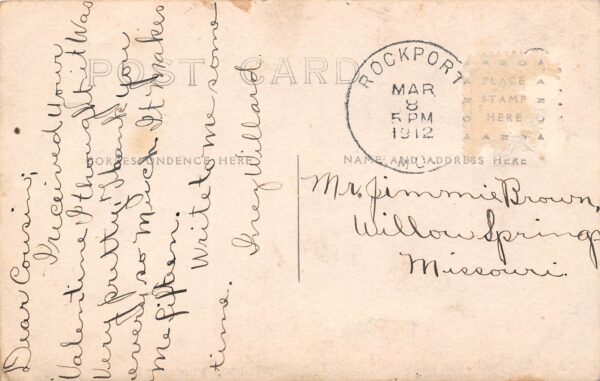 POST CARD
CORRESPONDENCE HERE
NAME AND ADDRESS HERE
PLACE
STAMP
HERE
ROCKPORT
MAR
8
5 PM
1912
MO.
Dear Cousin;
I received your
Valentine, I thought it was
very pretty, Thank you
every so much. It makes
me fifteen.
Write to me some
time.
Inez Willard.
Mr. Jimmie Brown,
Willow Springs
Missouri.